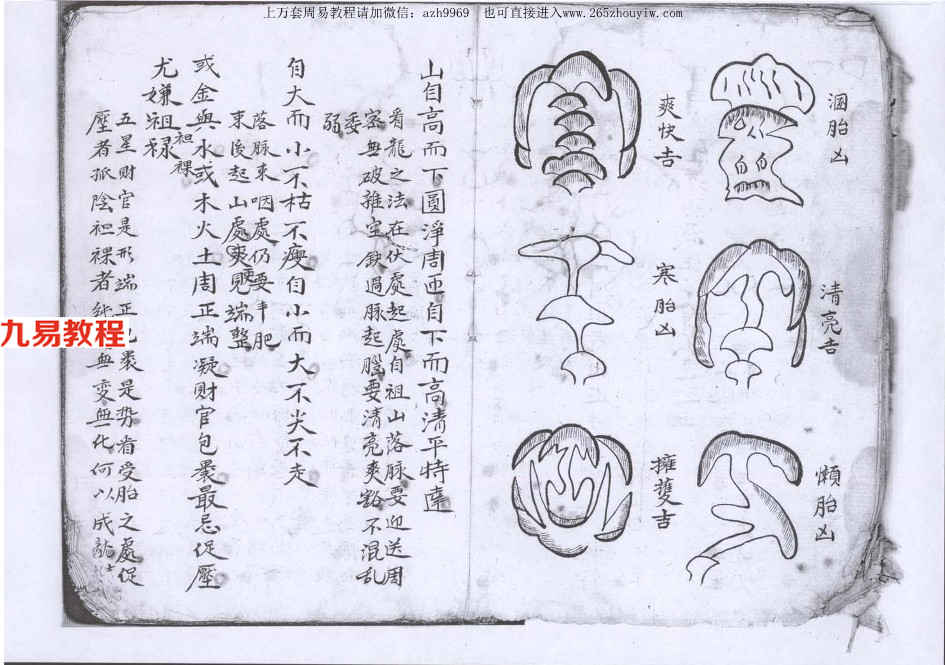 上万套周易教程请加微信：azh9969　也可直接进入www.265zhouyiw.com
涸胎凶
清亮吉
懶胎凶
爽快吉
寒胎凶
擁護吉
山自高而下圓淨周匝自下而高清平特達
看龍之法在伏處起處自祖山落脉要迎送周
密無破雜空缺過脉起腦要清亮爽豁不混乱
委
弱
自大而小不枯不瘦自小而大不尖不走
落脉束咽處仍要半肥
束後起山處爽更見端整
或金與水或木火土周正端凝财官包裹最忌促壓
尤嫌袒裸祖禄
五星财官是形端正包裹是势看受胎之處促
壓者孤陰袒裸者
無变無化何以成龍
九易教程